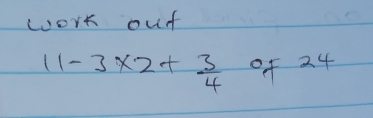 work out
11-3×2+ 3/4 of 24